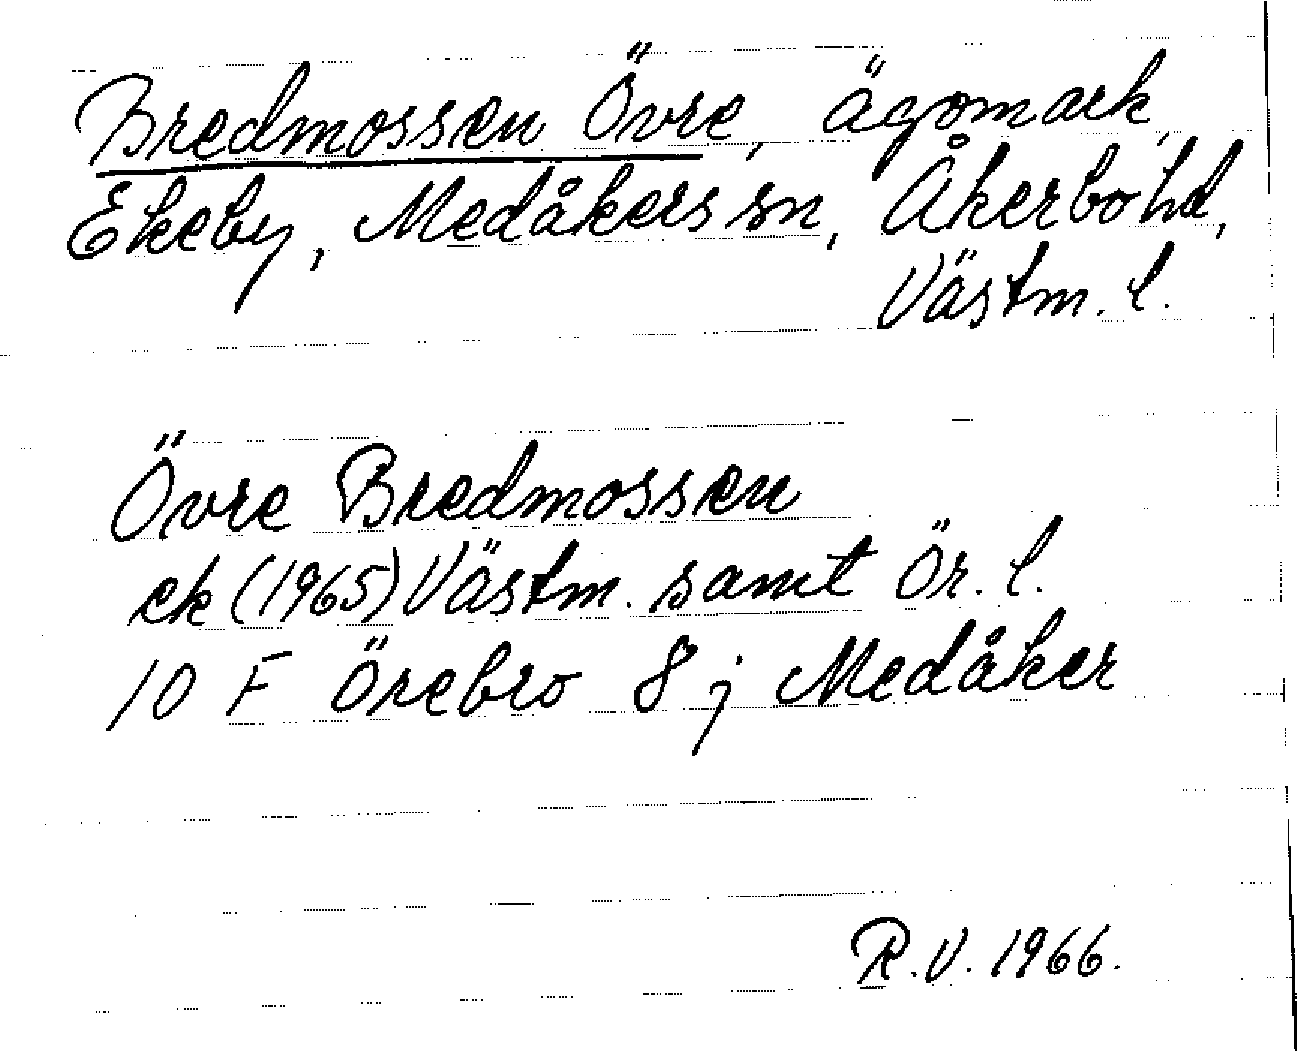 Bredmossen Övre, ägomark,
Ekeby, Medåkers sn, Åkerbo hd,
Västm. l.
Övre Bredmossen
ek (1965) Västm. samt Ör. l.
10 F Örebro 8 j Medåker
R.V. 1966.